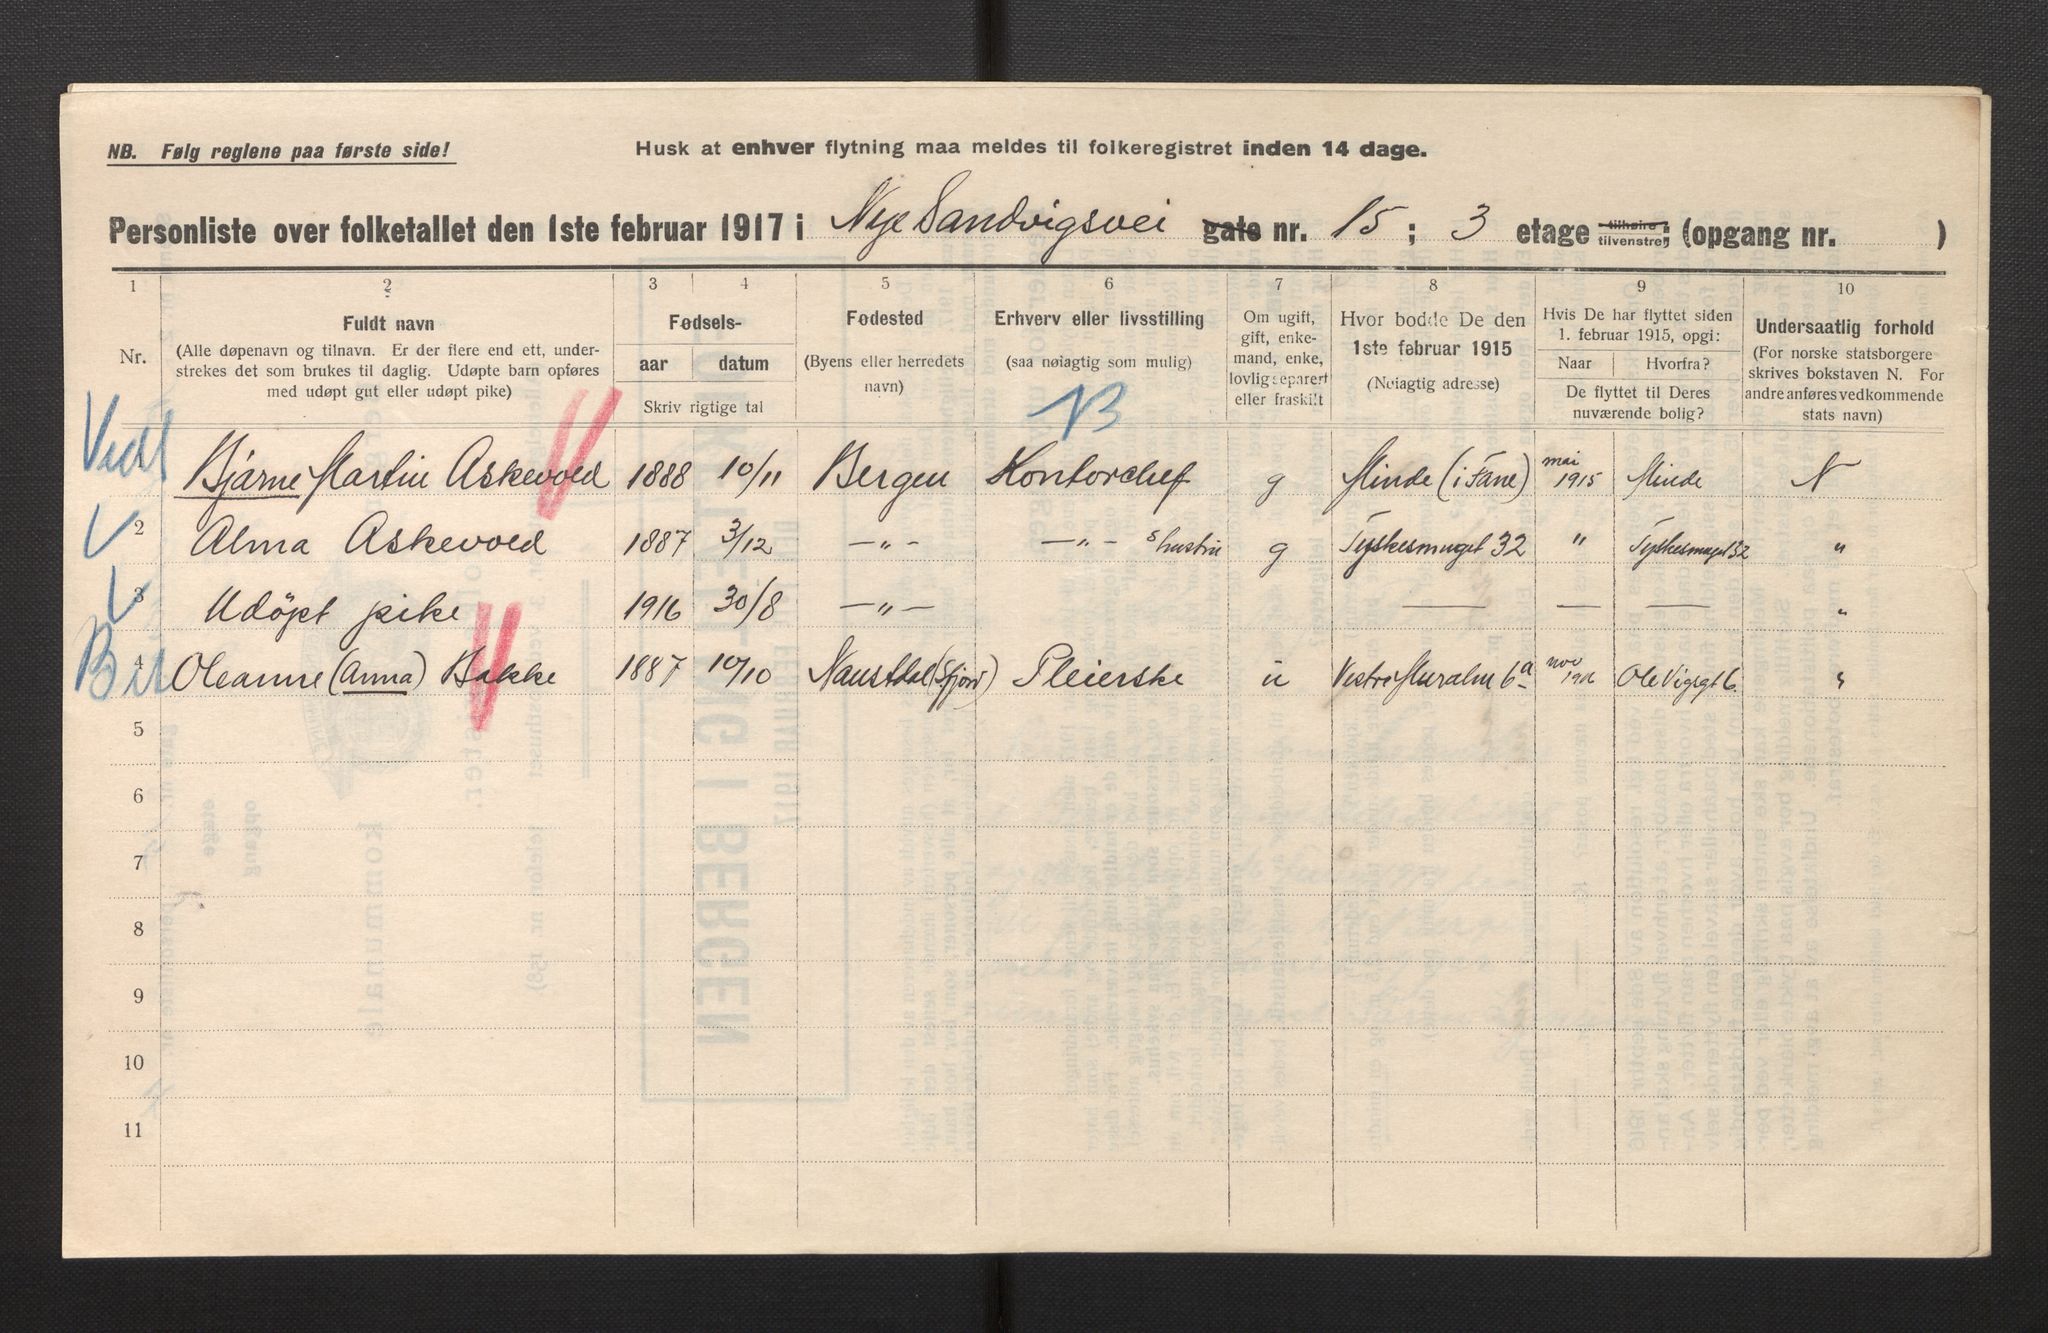 NB. Følg reglene paa første side! Husk at enhver flytning maa meldes til folkeregistret inden 14 dage.
Personliste over folketallet den 1ste februar 1917 i Nye Sandvigsvei gate nr. 15 ; 3 etage tilhøire tilvenstre; (opgang nr. )
1 2 3 4 5 6 7 8 9 10
Nr.
Fuldt navn
(Alle døpenavn og tilnavn. Er der flere end ett, under-
strekes det som brukes til daglig. Udøpte barn opføres
med udøpt gut eller udøpt pike)
Fødsels-
aar datum
Skriv rigtige tal
Fødested
(Byens eller herredets
navn)
Erhverv eller livsstilling
(saa nøiagtig som mulig)
B
Om ugift,
gift, enke-
mand, enke,
lovlig separert
eller fraskilt
Hvor bodde De den
1ste februar 1915
(Nøiagtig adresse)
Hvis De har flyttet siden
1. februar 1915, opgi:
Naar Hvorfra?
De flyttet til Deres
nuværende bolig?
Undersaatlig forhold
(For norske statsborgere
skrives bokstaven N. For
andre anføres vedkommende
stats navn)
Bjarne Martin Askevold 1888 10/11 Bergen Kontorchef g Minde (i Fane) mai 1915 Minde N
2 Alma Askevold 1887 3/12 —„— —„— s hustru g Tyskesmuget 32 „ Tyskesmuget 32 „
3 Udöpt pike 1916 30/8 —„— — — — „
4 Oleanne (Anna) Bakke 1887 10/10 Naustdal (Sfjord) Pleierske u Vestre Muralm 6a nov 1916 Ole Vigsgt 6. „
5
6
7
8
9
10
11